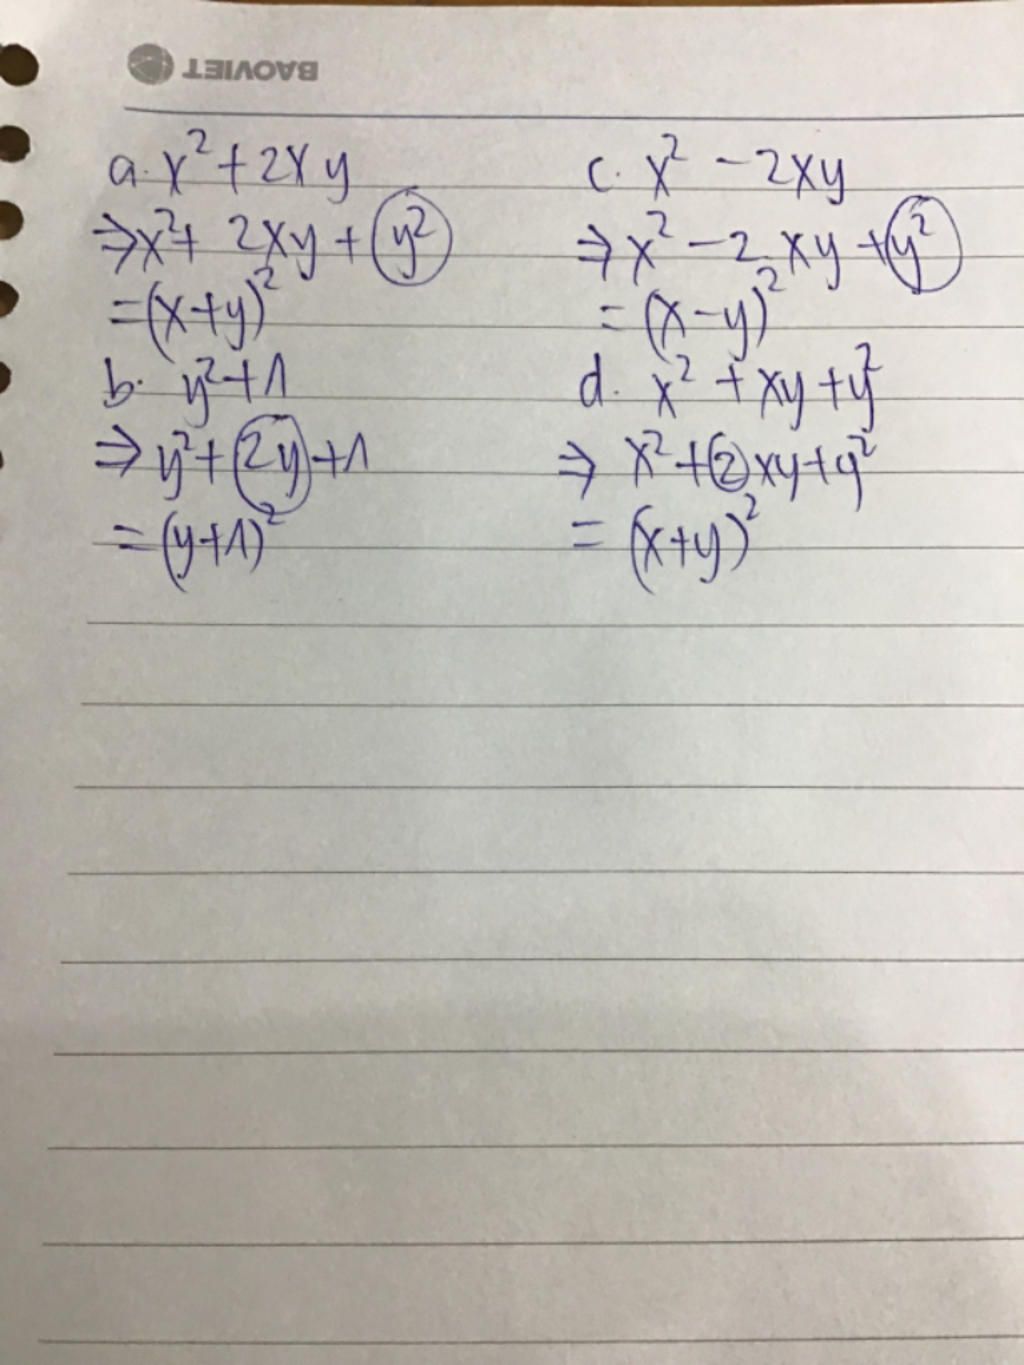 BAOVIET
a. x² + 2xy
⇒ x² + 2xy + y²
= (x+y)²
b. y² + 1
⇒ y² + 2y + 1
= (y+1)²
c. x² - 2xy
⇒ x² - 2xy + y²
= (x-y)²
d. x² + xy + y²
⇒ x² + 2xy + y²
= (x+y)²